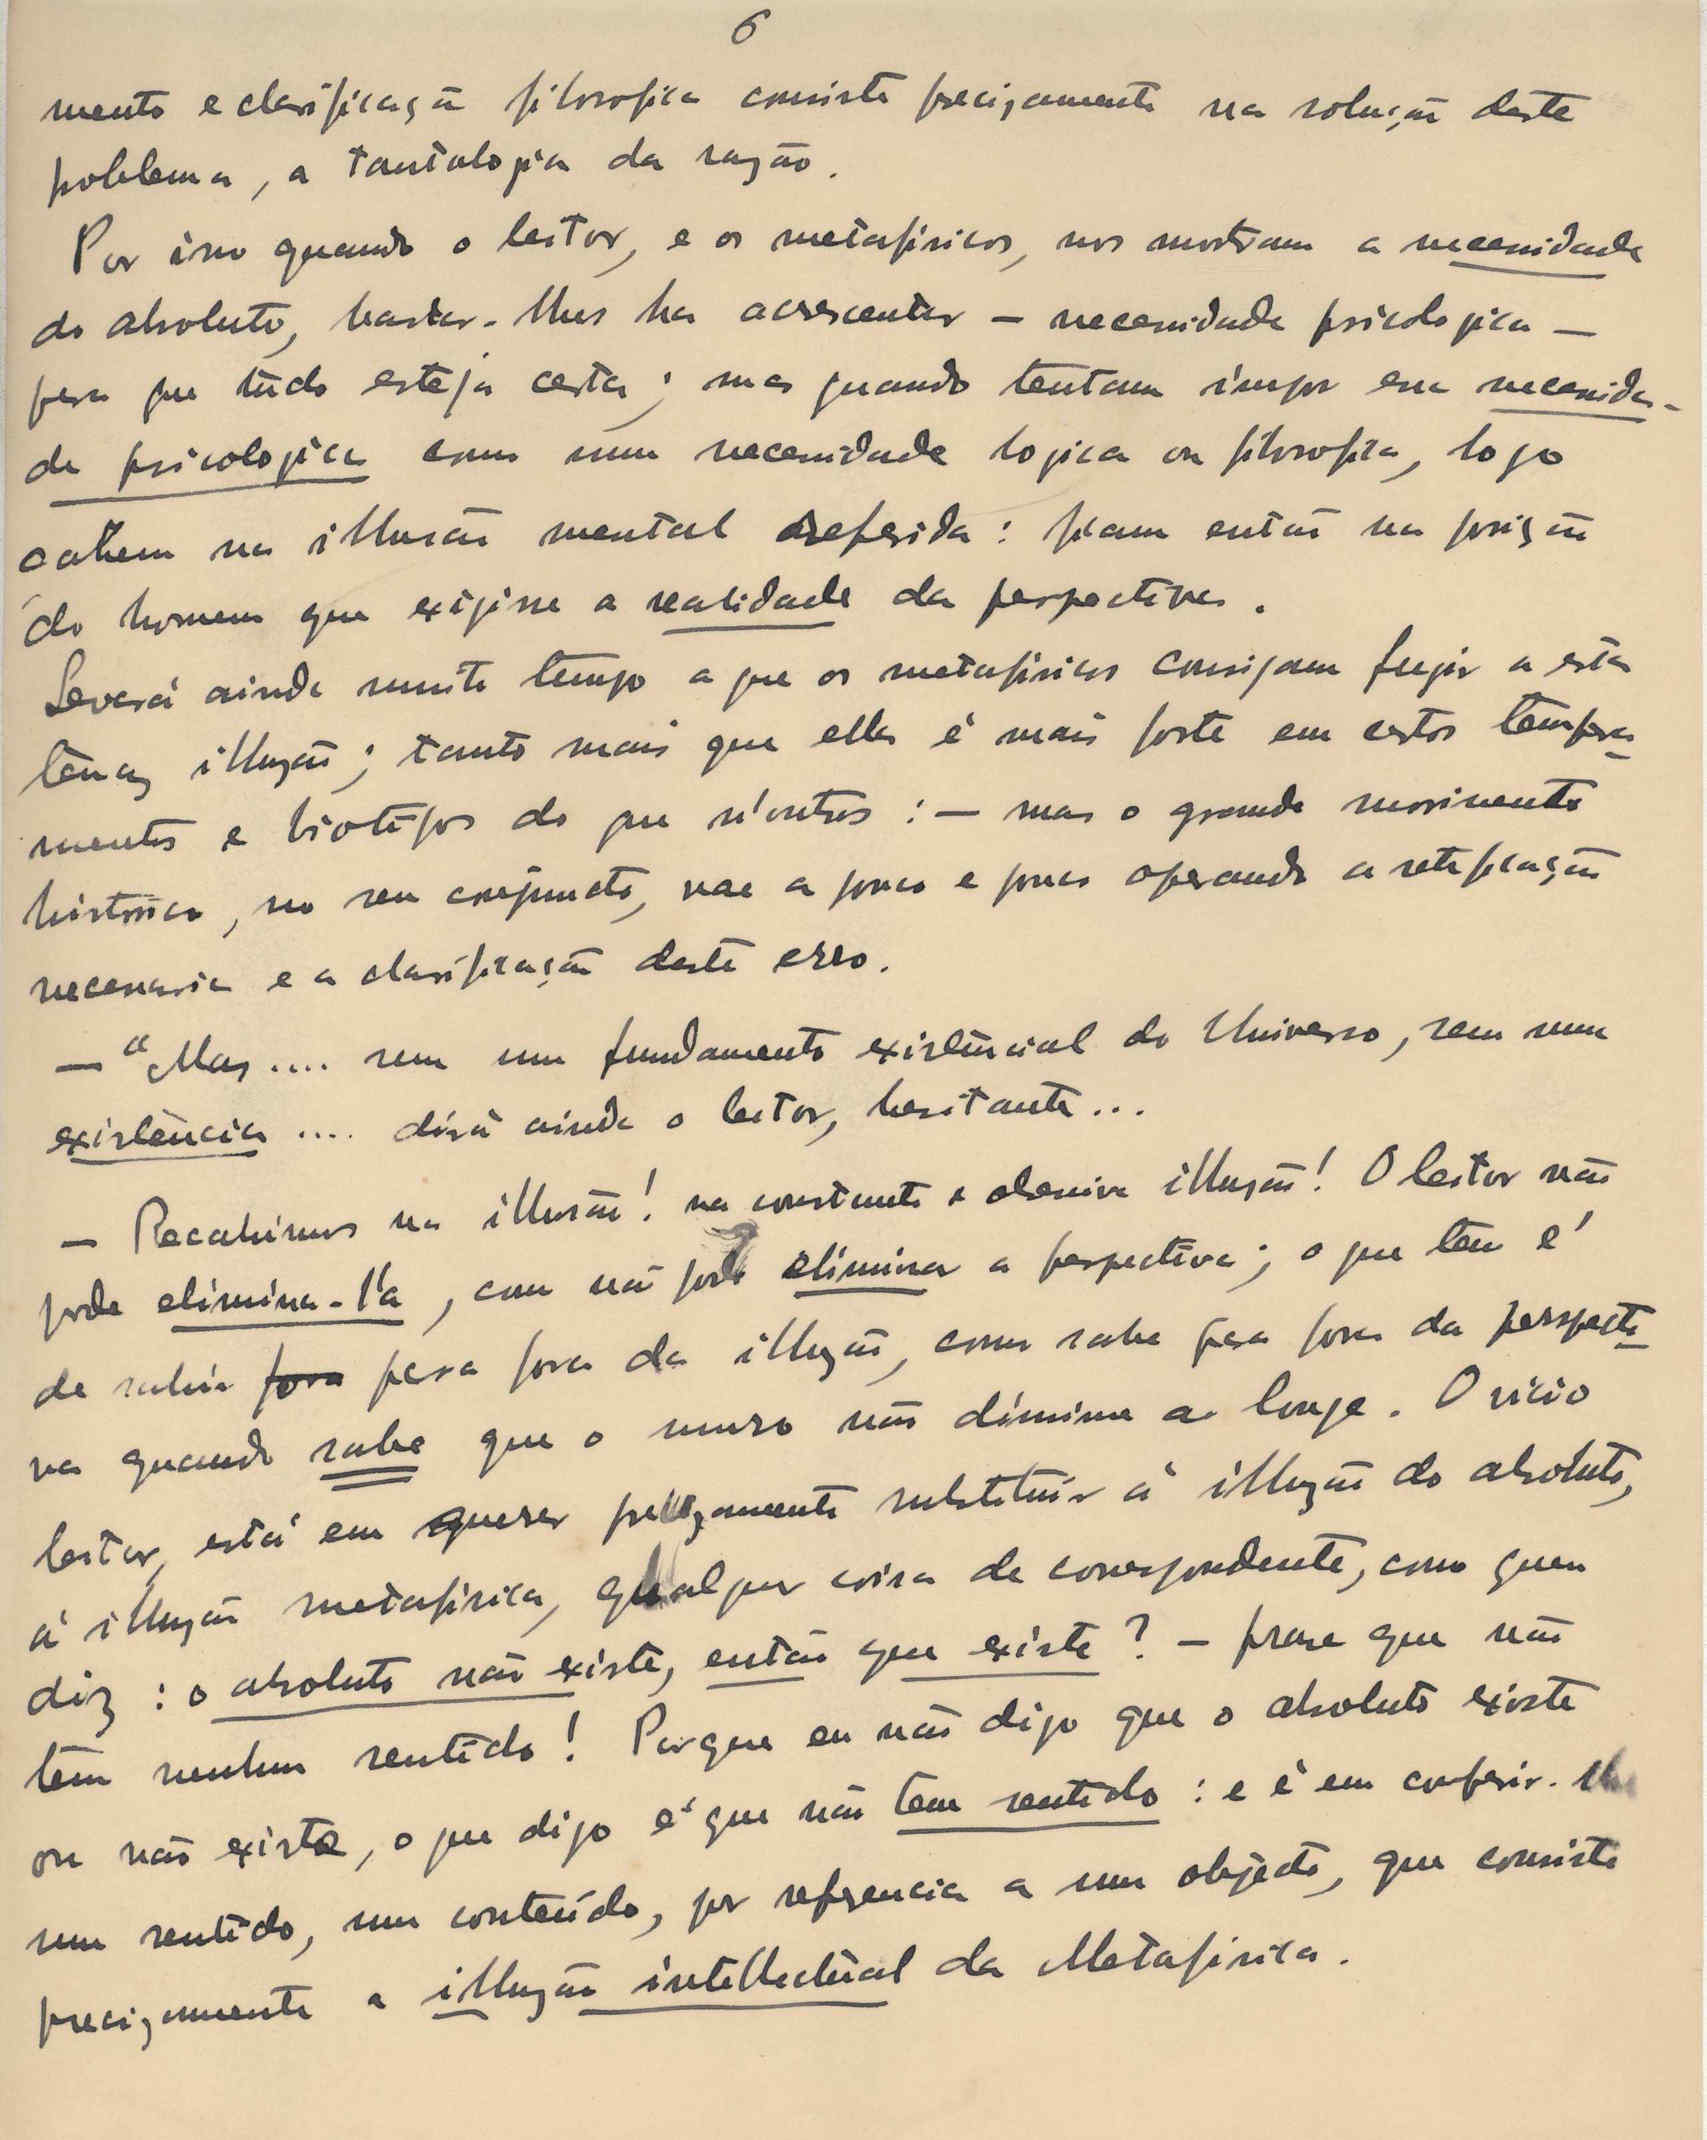 6
mento e clarificação filosofica consiste precizamente na solução deste
problema, a tautalogia da razão.
Por isso quando o leitor, e os metafisicos, nos mostram a necessidade
do absoluto, bastar-lhes ha acrescentar – necessidade psicologica –
para que tudo esteja certo; mas quando tentam impor essa necessida-
de psicologica como uma necessidade logica ou filosofica, logo
cahem na illusão mental referida: ficam então na posição
do homem que exigisse a realidade da perspectiva.
Levará ainda muito tempo a que os metafisicos consigam fugir a esta
tenaz illuzão; tanto mais que ella é mais forte em certos tempera-
mentos e biotipos do que n'outros: – mas o grande movimento
historico, no seu conjuncto, vae a pouco e pouco operando a retificação
necessaria e a clarificação deste erro.
– "Mas.... sem um fundamento existencial do Universo, sem uma
existência .... dirá ainda o leitor, hesitante...
– Recahimos na illusão! na constante e obsessiva illuzão! O leitor não
pode elimina-l'a, como não pode eliminar a perspectiva; o que tem é
de sahir fora para fora da illuzão, como sahe para fora da perspecti-
va quando sabe que o muro não diminue ao longe. O vicio
leitor, está em querer precizamente substituir á illuzão do absoluto,
á illuzão metafisica, qualquer coisa de correspondente, como quem
diz: o absoluto não existe, então que existe? – frase que não
tem nenhum sentido! Porque eu não digo que o absoluto existe
ou não existe, o que digo é que não tem sentido: e é em conferir-lhe
um sentido, um conteúdo, por referencia a um objecto, que consiste
precizamente a illuzão intellectual da Metafisica.